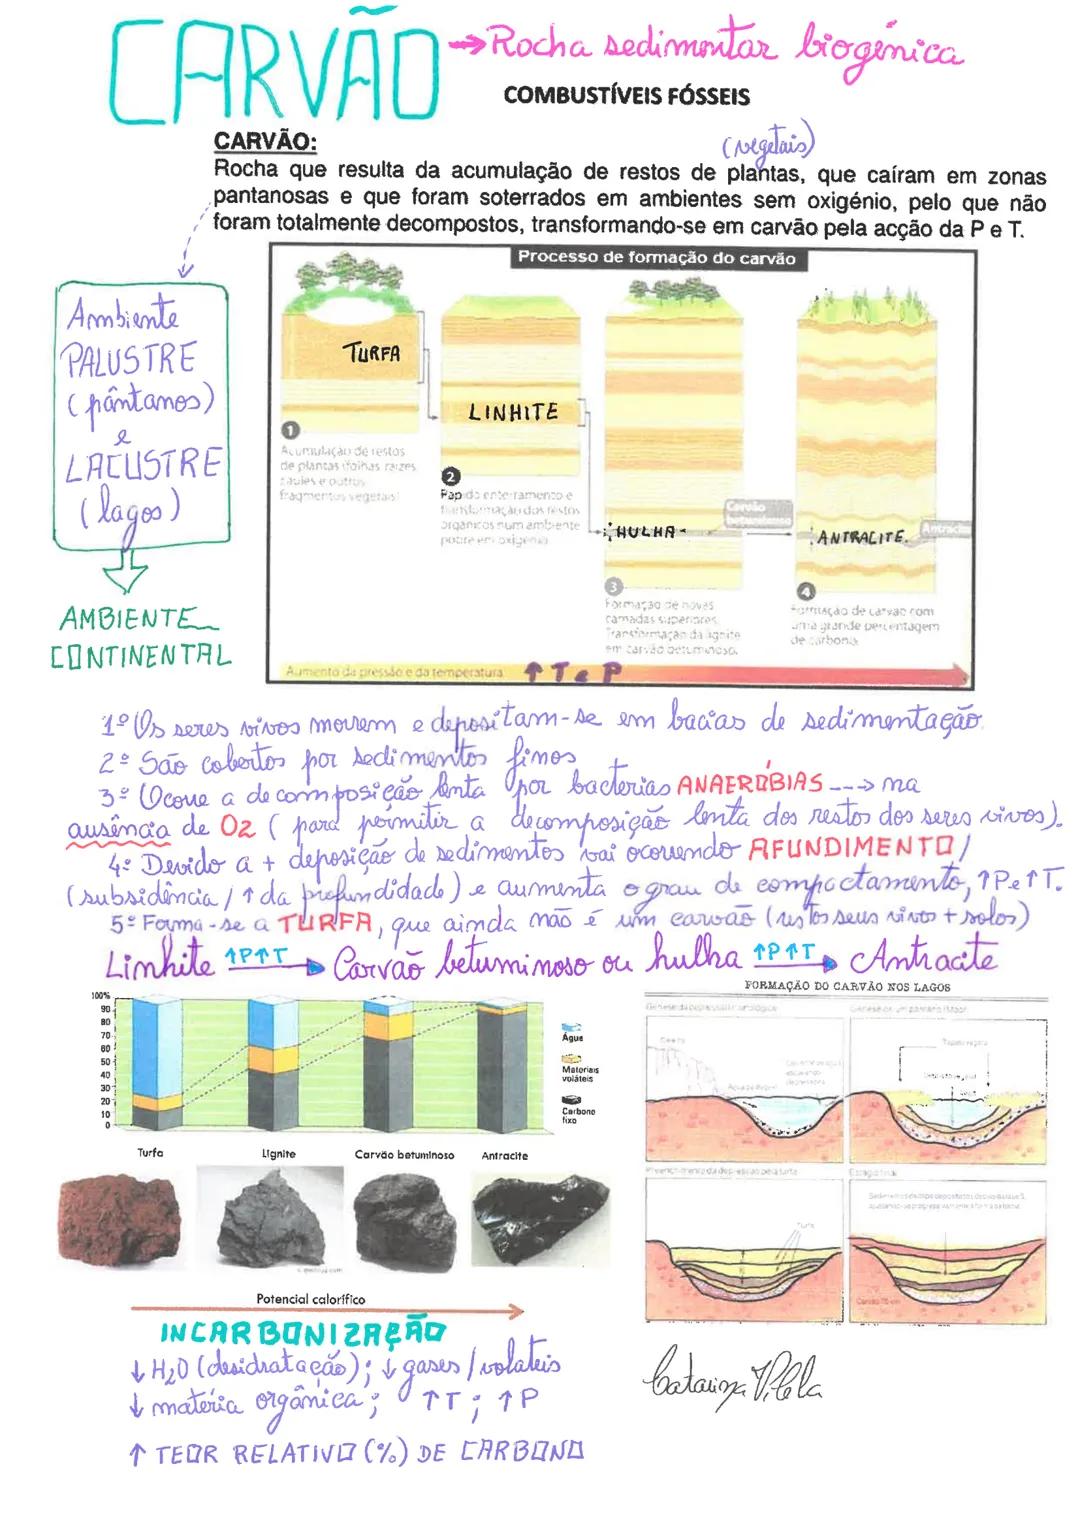 CARVÃO → Rocha sedimentar biogénica
COMBUSTÍVEIS FÓSSEIS
CARVÃO:
(vegetais)
Rocha que resulta da acumulação de restos de plantas, que caíram em zonas
pantanosas e que foram soterrados em ambientes sem oxigénio, pelo que não
foram totalmente decompostos, transformando-se em carvão pela acção da P e T.
Processo de formação do carvão
Ambiente
PALUSTRE
(pântanos)
e
LACUSTRE
(lagos)
AMBIENTE
CONTINENTAL
TURFA
1
Acumulação de restos
de plantas (folhas, raízes,
caules e outros
fragmentos vegetais)
LINHITE
2
Rápido enterramento e
transformação dos restos
orgânicos num ambiente
pobre em oxigénio
HULHA
Carvão
betuminoso
3
Formação de novas
camadas superiores.
Transformação da lignite
em carvão betuminoso.
ANTRALITE.
Antracite
4
Formação de carvão com
uma grande percentagem
de carbono.
Aumento da pressão e da temperatura ↑ T e P
1º Os seres vivos morrem e depositam-se em bacias de sedimentação.
2º São cobertos por sedimentos finos
3º Ocorre a decomposição lenta por bactérias ANAERÓBIAS ---> na
ausência de O2 (para permitir a decomposição lenta dos restos dos seres vivos).
4º Devido a + deposição de sedimentos vai ocorrendo AFUNDIMENTO/
(subsidência / ↑ da profundidade) e aumenta o grau de compactamento, ↑P e ↑T.
5º Forma-se a TURFA, que ainda não é um carvão (restos seres vivos + solos)
Linhite ↑P↑T → Carvão betuminoso ou hulha ↑P↑T → Antracite
100%
90
80
70
60
50
40
30
20
10
0
Água
Materiais
voláteis
Carbono
fixo
Turfa Lignite Carvão betuminoso Antracite
Potencial calorífico
INCARBONIZAÇÃO
↓ H2O (desidratação); ↓ gases/volateis
↓ matéria orgânica; ↑T; ↑P
↑ TEOR RELATIVO (%) DE CARBONO
FORMAÇÃO DO CARVÃO NOS LAGOS
Preenchimento da depressão pela turfa
Estágio final
Turfa